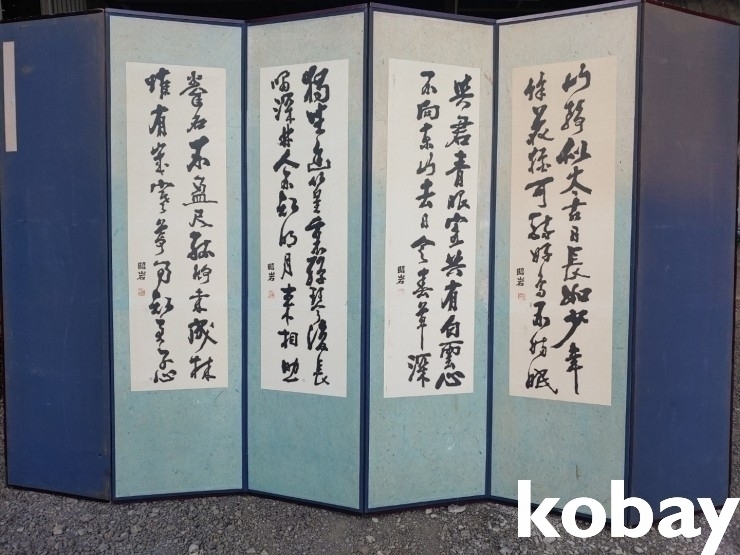 山靜似太古日長如少年
餘花猶可醉好鳥不妨眠
昭岩
與君青眼客共有白雲心
不向東山去日令春草深
昭岩
獨坐幽篁裏彈琴復長
嘯深林人不知明月來相照
昭岩
拳石不盈尺孤竹未成林
唯有歲寒節乃知君子心
昭岩
kobay